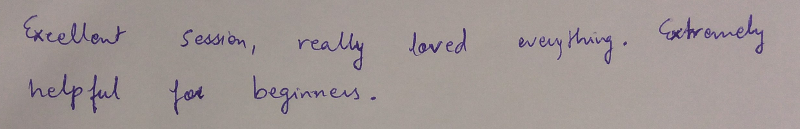 Excellent session, really loved everything. Extremely
helpful for beginners.